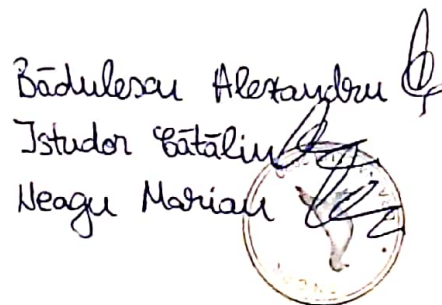 Bădulescu Alexandru
Istudor Cătălin
Neagu Marian